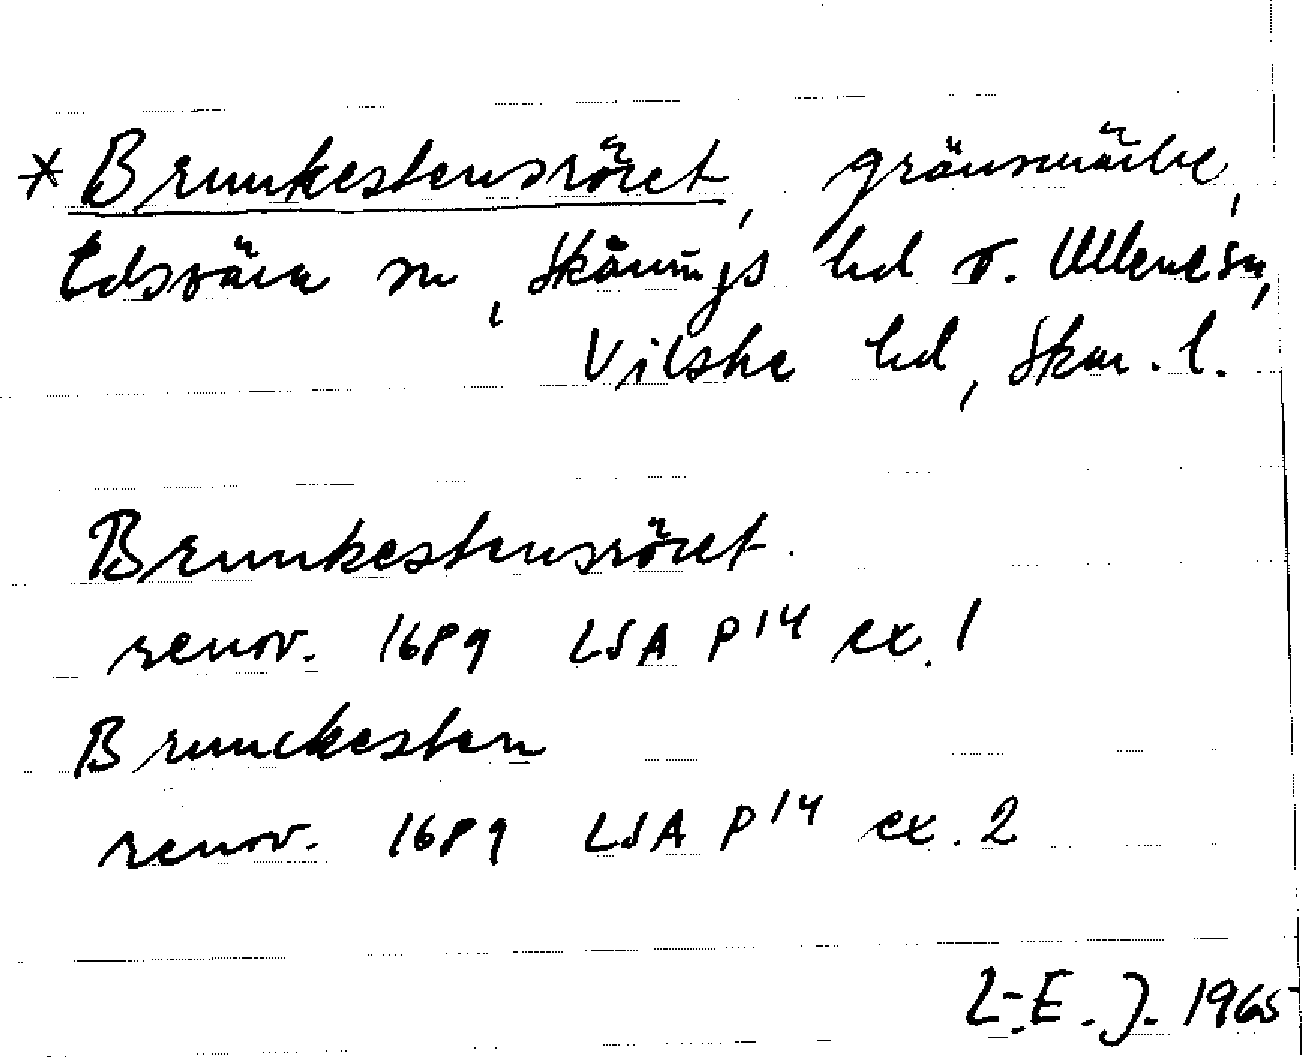 * Brunkestensröret, gränsmärke,
Edsvära sn, Skånings hd o. Ullene sn,
Vilske hd, Skar. l.
Brunkestensröret.
renov. 1689 LSA P 14 ex. 1
Brunckesten
renov. 1689 LSA P 14 ex. 2
L-E. J. 1965